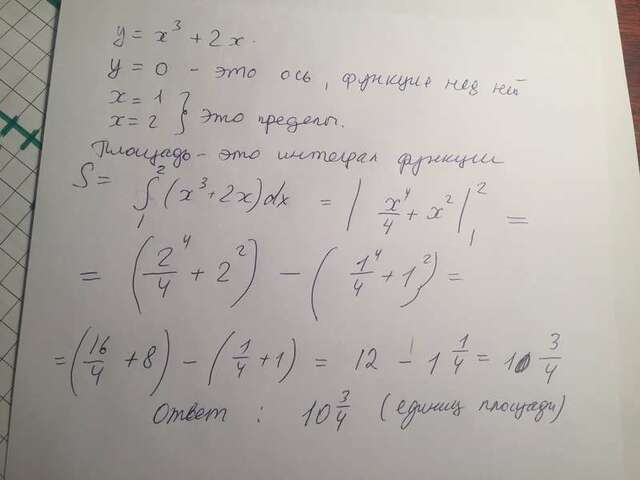 y = x³ + 2x.
y = 0 - это ось, функция над ней
x = 1
x = 2 } это пределы.
Площадь - это интеграл функции
S = ∫₁² (x³ + 2x)dx = | x⁴/4 + x² |₁² =
= (2⁴/4 + 2²) - (1⁴/4 + 1²) =
= (16/4 + 8) - (1/4 + 1) = 12 - 1 1/4 = 10 3/4
Ответ : 10 3/4 (единиц площади)